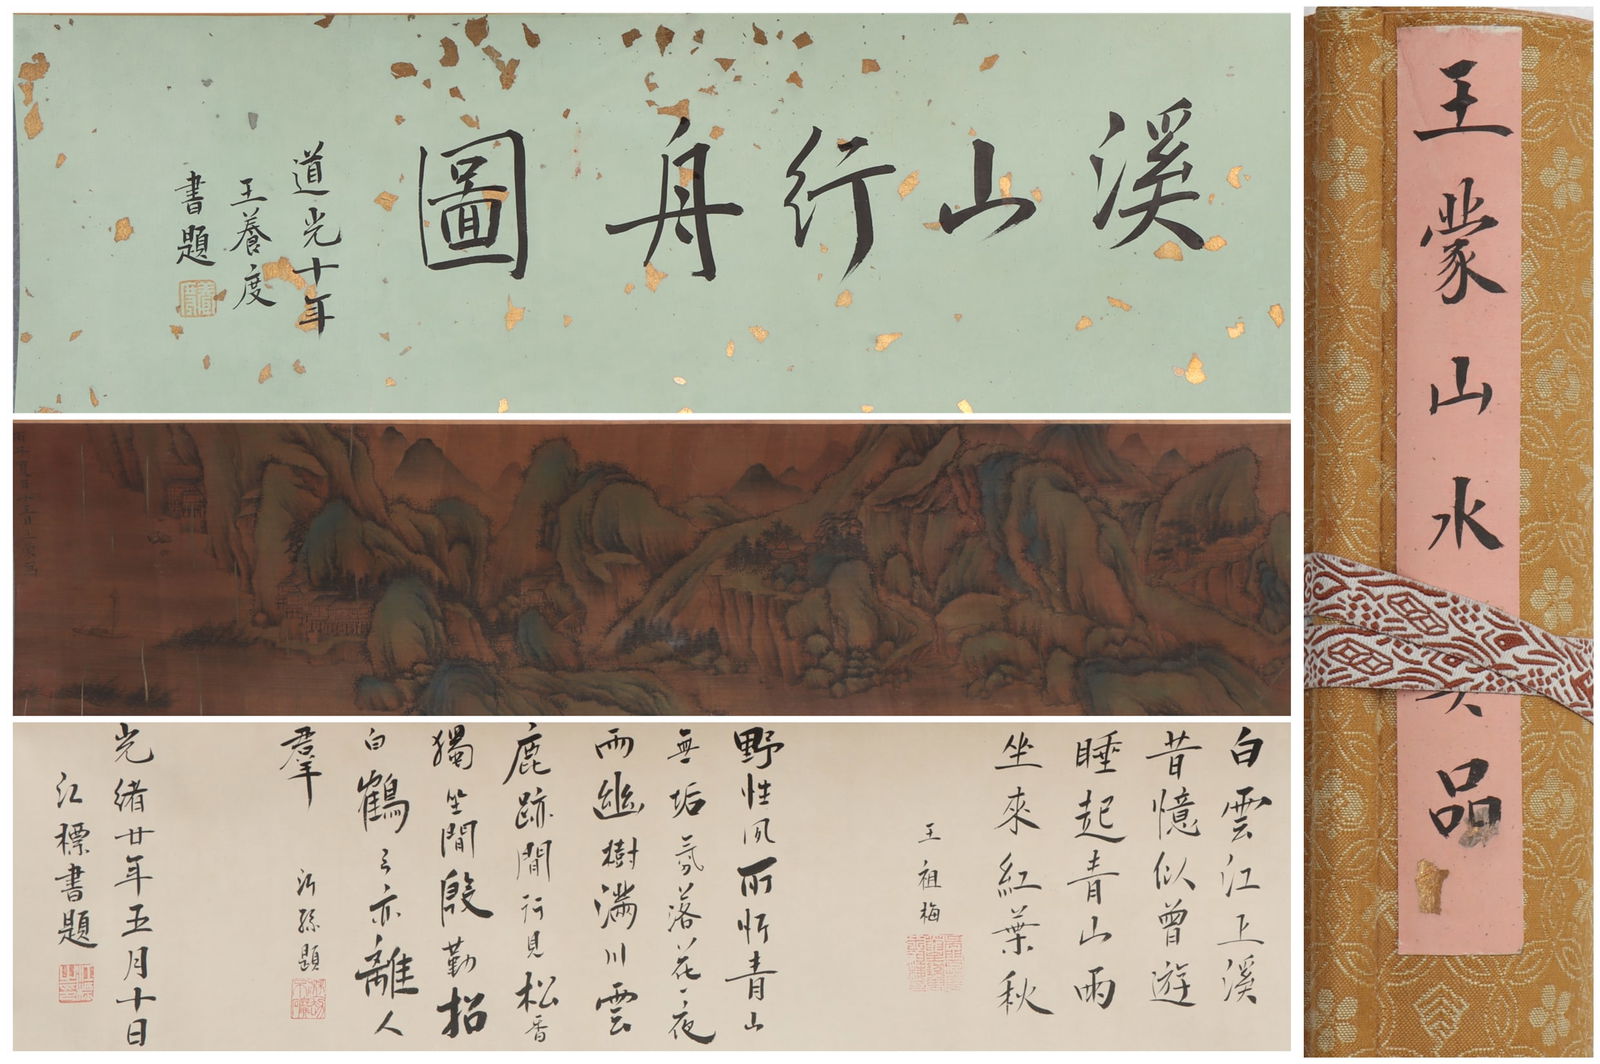 溪山行舟圖
道光十年
王養度
書題
白雲江上溪
昔憶似曾遊
睡起青山雨
坐來紅葉秋
王祖梅
野性夙所忻青山
無垢氛落花一夜
雨幽樹滿川雲
鹿跡閒行見松香
獨坐聞殷勤招
白鶴亦離人
羣
沂孫題
光緒廿年五月十日
江標書題
王蒙山水品